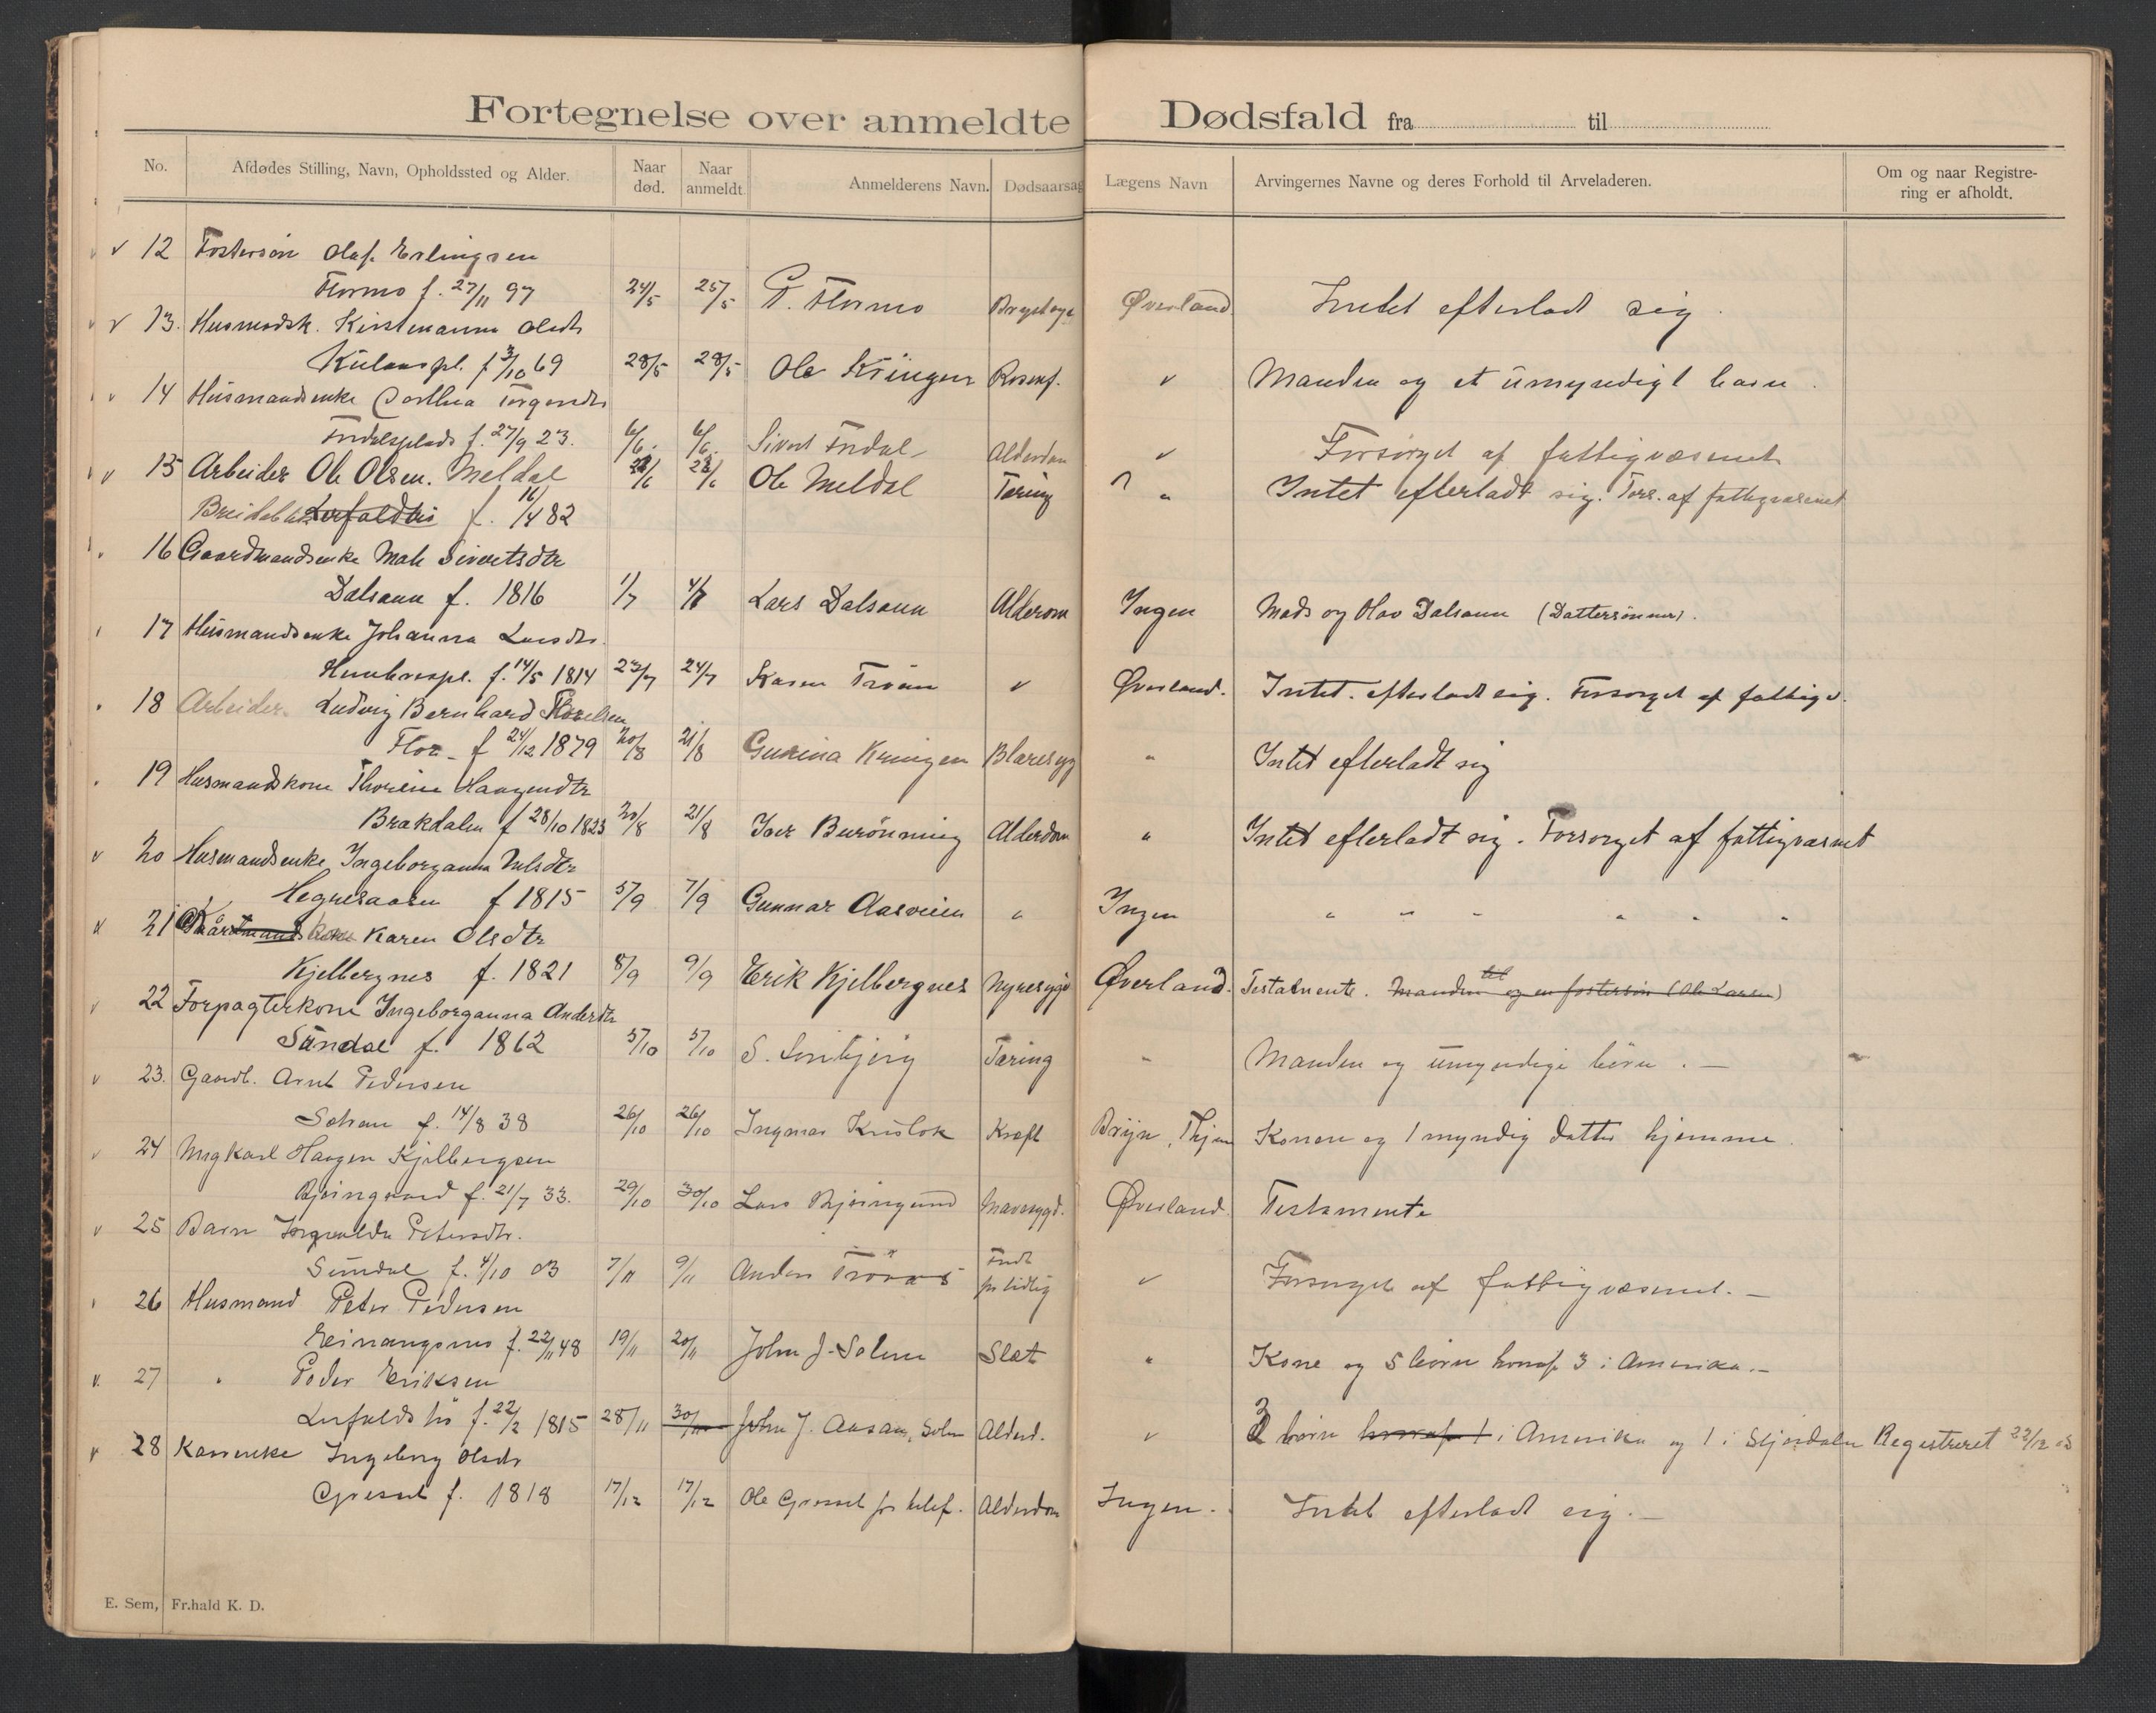 Fortegnelse over anmeldte Dødsfald fra til
No. Afdødes Stilling, Navn, Opholdssted og Alder. Naar død. Naar anmeldt. Anmelderens Navn. Dødsaarsag Lægens Navn Arvingernes Navne og deres Forhold til Arveladeren. Om og naar Registrering er afholdt.
v 12 Fostersøn Olaf Erlingsen
Flormo f. 27/11 97 24/5 25/5 P. Flormo Øverland Intet efterladt sig.
v 13. Husmodsk. Olsdtr
f 3/10 69 28/5 28/5 Ole Kringen v Manden og et umyndigt barn.
v 14 Husmandsenke
f. 27/9 23. 6/6. 6/6. Sivert Alderdom v Forsørget af fattigvæsenet
v 15 Arbeider Ole Olsen. Meldal Ole Meldal Tæring " Intet efterladt sig. Fors. af fattigvæsenet
f. 16/4 82
16 Gaardmandsenke Mali Sivertsdtr
Dalsaun f. 1816 1/7 4/7 Lars Dalsaun Alderom Ingen Mads og Olav Dalsaun (Dattersønner).
17 Husmandsenke Johanna Larsdtr.
f. 14/5 1814 23/7 24/7 Karen Trøen v Øverland. Intet efterladt sig. Forsørget af fattigv.
18 Arbeider. Ludvig Bernhard
Flor f 24/12 1879 20/8 21/8 Gurina Kringen Intet efterladt sig
19 Husmandskone Haagendtr
Brakdalen f 28/10 1823 20/8 21/8 Iver Burønning Alderdom " Intet efterladt sig. Forsørget af fattigvæsnet
v 20 Husmandsenke Ingeborganna Nilsdtr
f 1815 5/9 7/9 Gunnar Aasveien " Ingen " " " " " "
v 21 Karen Olsdtr
Kjelbergnes f. 1821 8/9 9/9 Erik Kjelbergnes Nyresyge Øverland. Testamente. Manden og en fostersøn (Ole Larsen)
v 22 Forpagterkone Ingeborganna Andersdtr
Sundal f. 1862 5/10 5/10 Tæring " Manden og umyndige børn. —
v 23. Gaardb. Arnt Pedersen
f. 14/8 38 26/10 26/10 Ingmar Kræft Konen og 1 myndig datter hjemme.
v 24 Ungkarl Haagen Kjelbergsen
f. 21/7 33. 29/10 30/10 Lars Mavesygd. Øverland. Testamente
v 25 Barn Petersdtr.
Sundal f. 4/10 03 7/11 9/11 Anders Født for tidlig v Forsørget af fattigvæsenet. —
26 Husmand Peter Pedersen
f. 22/11 48 19/11 20/11 John J. Solem Slag " Kone og 5 børn hvoraf 3 i Amerika. —
v. 27 " Peder Eriksen
f. 22/2 1815 28/11 30/11 John J. Aasan, Solem Alderd. v 3 børn hvoraf 1 i Amerika og 1 i Stjørdalen Registreret 22/12 03
v 28 Ingeborg Olsdtr
Græsset f. 1818 17/12 17/12 Ole Græsset pr telef. Alderdom Ingen. Intet efterladt sig. —
E. Sem, Fr.hald K. D.